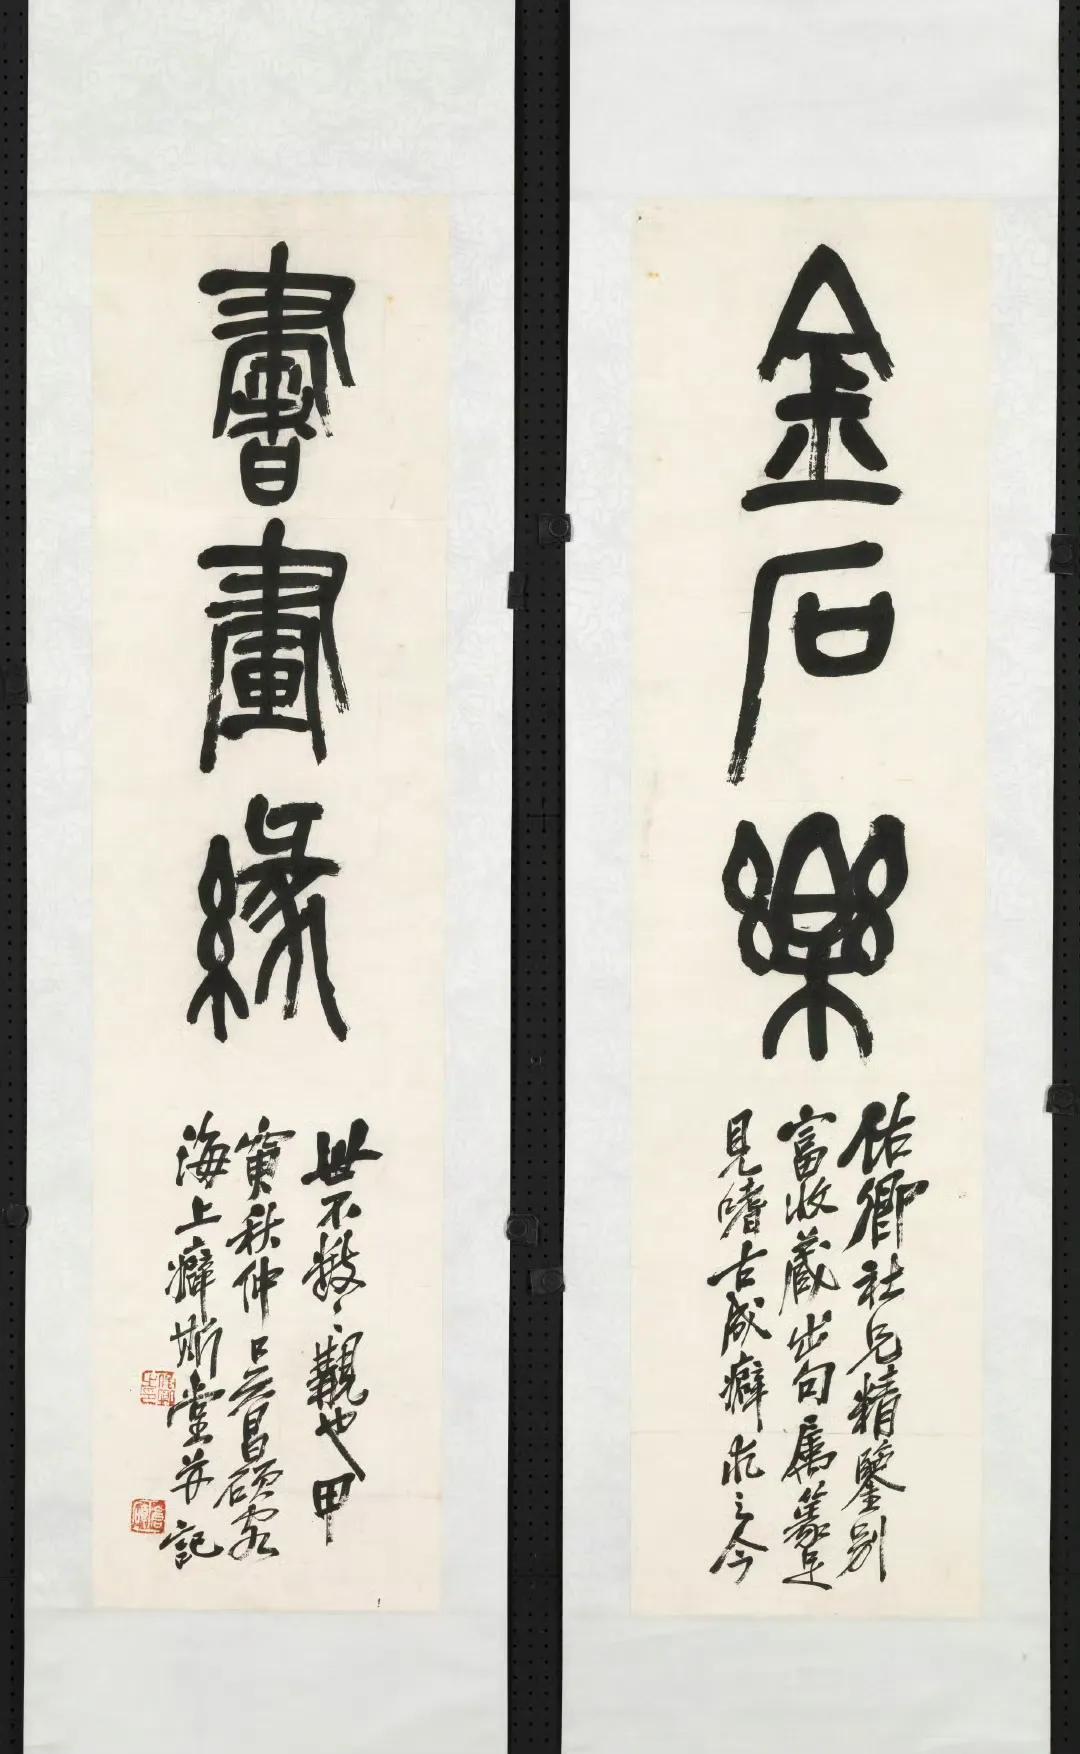 金石樂
佑卿社兄精鑒別
富收藏出句屬篆足
見嗜古成癖求之今
書畫緣
世不數數觀也甲
寅秋仲吳昌碩客
海上癖斯堂并記